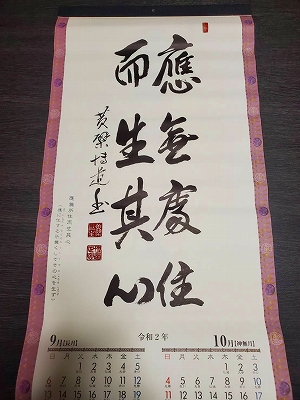 應無處住
而生其心
黄檗博道書
應無所住而生其心
令和2年
9月[長月]
日 月 火 水 木 金 土
1 2 3 4 5
6 7 8 9 10 11 12
13 14 15 16 17 18 19
10月[神無月]
日 月 火 水 木 金 土
1 2 3
4 5 6 7 8 9 10
11 12 13 14 15 16 17